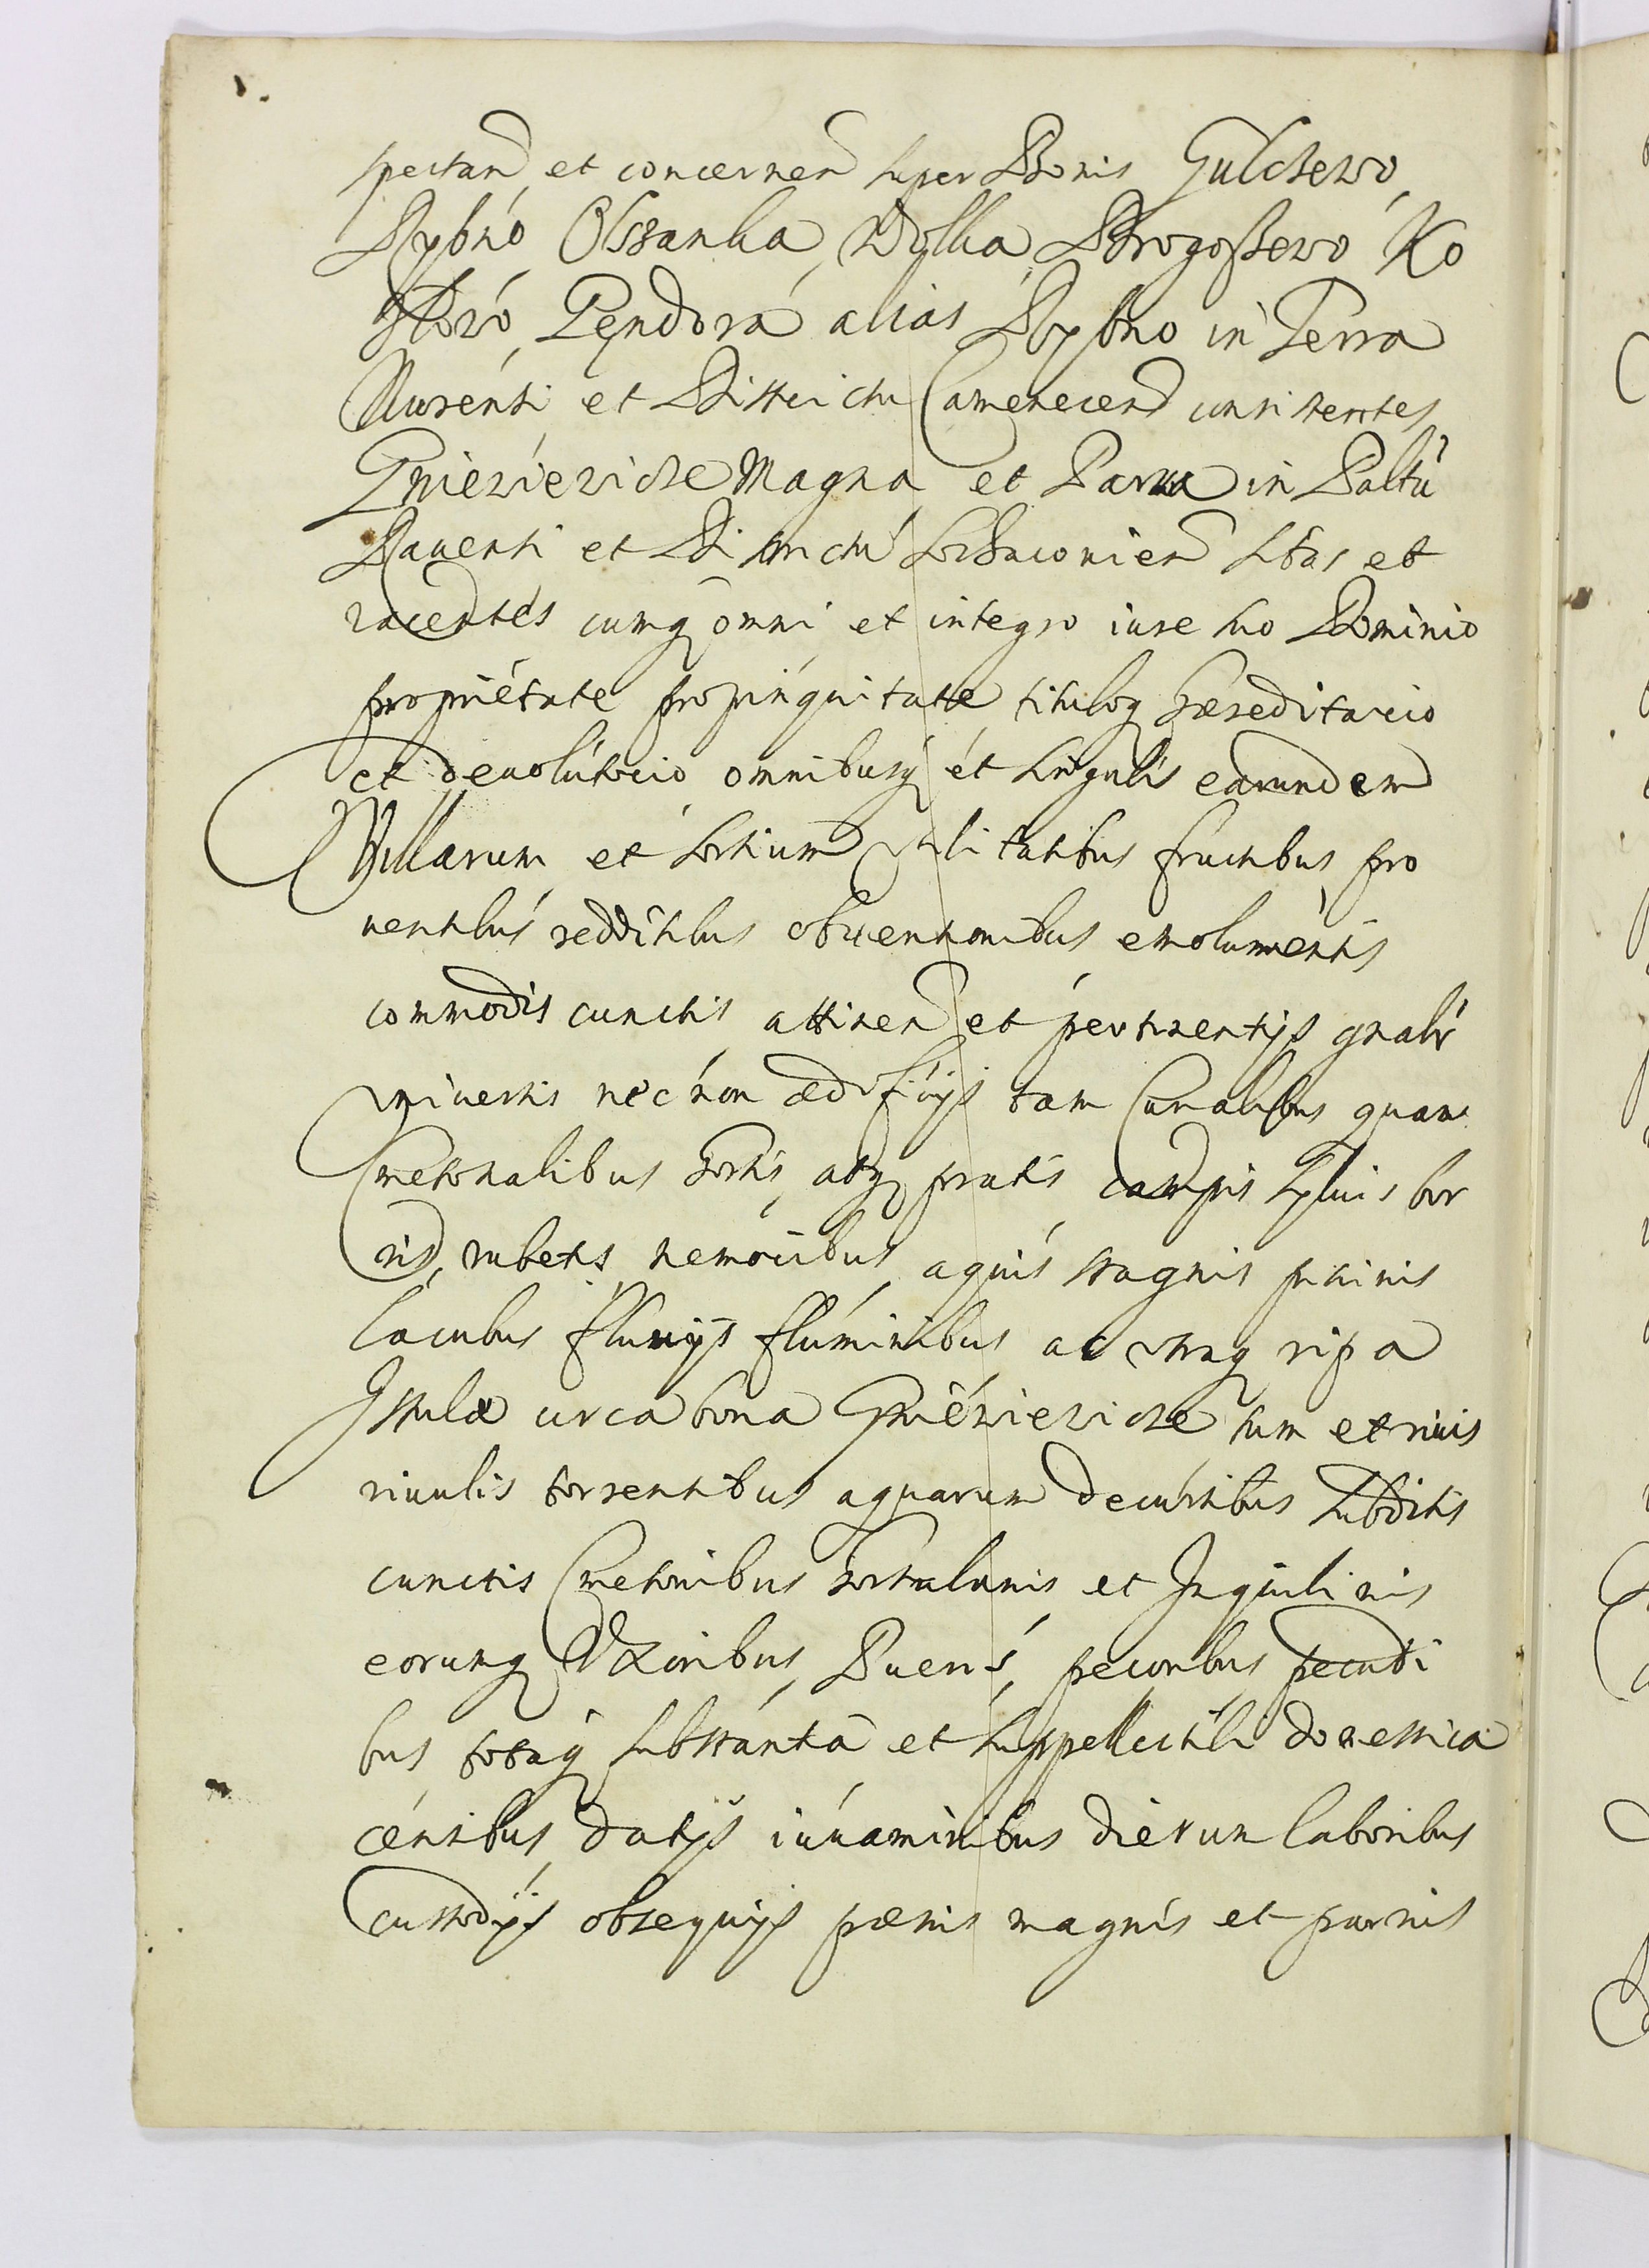 spectan et concernen super Bonis Gulczewo
Rybno Olszanka Wolka Drogoszewo Ko
złowo, Pęndora alias Rybno in Terra
Nurensi et Districtu Camenecen consistentes
Gniewiewicze Magna et Parua in Paltū
Rauensi et Districtu Sochaconien sitas et
iacentes cumq omni et integro iure suo Dominio
proprietate propinquitate tituloq hæreditario
et deuolutorio omnibusq et singulis earundem
Villarum et sortium vtilitatibus fructibus pro
uentibus redditibus obuentionibus emolumentis
commodis cunctis attinen et pertinentijs gnalr
vniuersis nec non ædificijs tam Curialibus quam
Cmetonalibus hortis atq pratis campis syluis bor
ris, rubetis nemoribus aquis stagnis piscinis
lacubus fluuijs fluminibus ac vtraq ripa
Istulæ circa bona Gniewiewicze tum et riuis
riuulis torrentibus aquarum decursibus subditis
cunctis Cmetonibus hortulanis et Inquilinis
eorumq Vxoribus, Pueris, pecoribus pecudi
bus totaq substantia et suppellectili domestica
censibus datijs iuuaminibus dierum laboribus
custodijs obsequijs pœnis magnis et paruis